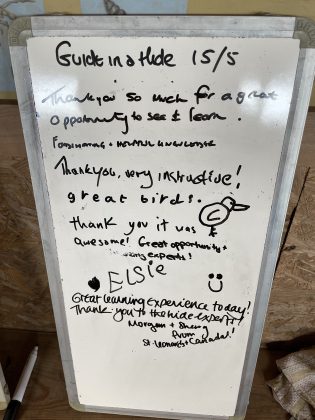 Guide in a Hide 15/5
Thank you so much for a great
opportunity to see & learn.
Fascinating + helpful knowledge
Thankyou, very instructive!
great birds.
thank you it was
awesome! Great opportunity +
experts!
ELSIE
Great learning experience today!
Thank you to the hide expert!
Morgan +
from
St. Leonards + Canada!